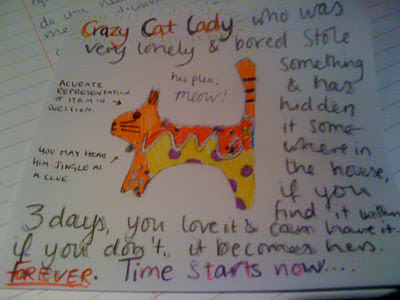 Crazy Cat Lady who was
very lonely & bored Stole
something
& has
hidden
it some-
where in
the house,
if you
find it within
3 days, you love it & can have it.
if you don't, it becomes hers.
FOREVER. Time Starts now....
ACURATE
REPRESENTATION
OF ITEM IN
QUESTION.
his plea,
meow!
YOU MAY HEAR
HIM JINGLE AS
A CLUE.